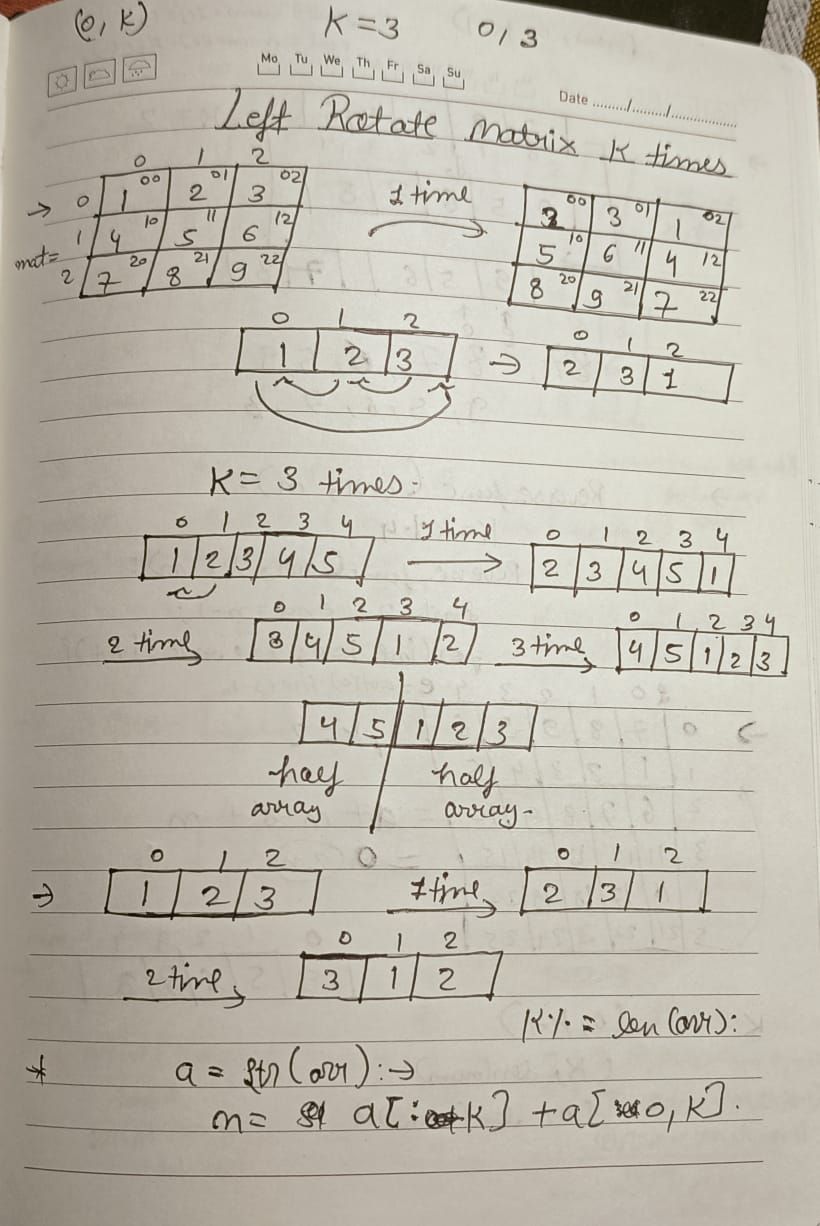 (0, K) K = 3 0, 3
Mo Tu We Th Fr Sa Su
Date ......./......./...............
Left Rotate Matrix K times
0 1 2
→ 0 1 00 2 01 3 02 1 time 2 00 3 01 1 02
mat = 1 4 10 5 11 6 12 → 5 10 6 11 4 12
2 7 20 8 21 9 22 8 20 9 21 7 22
0 1 2 0 1 2
1 2 3 → 2 3 1
K = 3 times.
0 1 2 3 4 1 time 0 1 2 3 4
1 2 3 4 5 → 2 3 4 5 1
0 1 2 3 4 0 1 2 3 4
2 time 3 4 5 1 2 3 time 4 5 1 2 3
4 5 1 2 3
half half
array array-
0 1 2 0 1 2
→ 1 2 3 1 time 2 3 1
0 1 2
2 time 3 1 2
K % = len (arr):
* a = str (arr) : →
n = a[: K] + a[ 0, K].